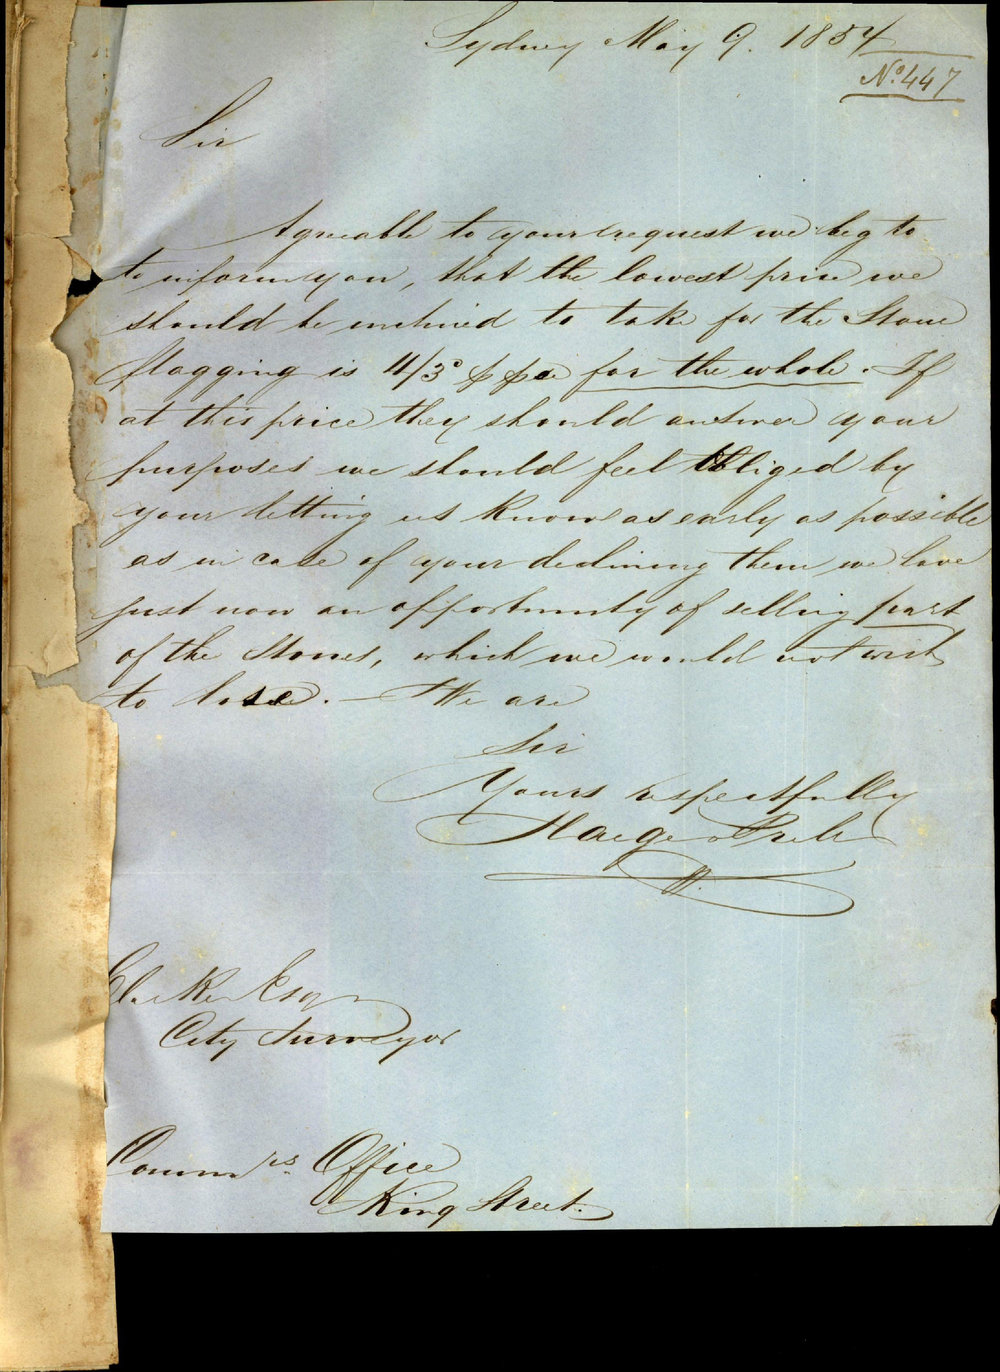 Sydney May 9. 1854
No. 447
Sir
Agreeable to your request we beg to
to inform you, that the lowest price we
should be inclined to take for the Stone
flagging is 4/3d for the whole. If
at this price they should answer your
purposes we should feel obliged by
your letting us know as early as possible
as in case of your declining them we have
just now an opportunity of selling part
of the Stones, which we would not wish
to lose. — We are
Sir
Yours respectfully
Haege & Prell
Esqr
City Surveyor
Commrs. Office
King Street.